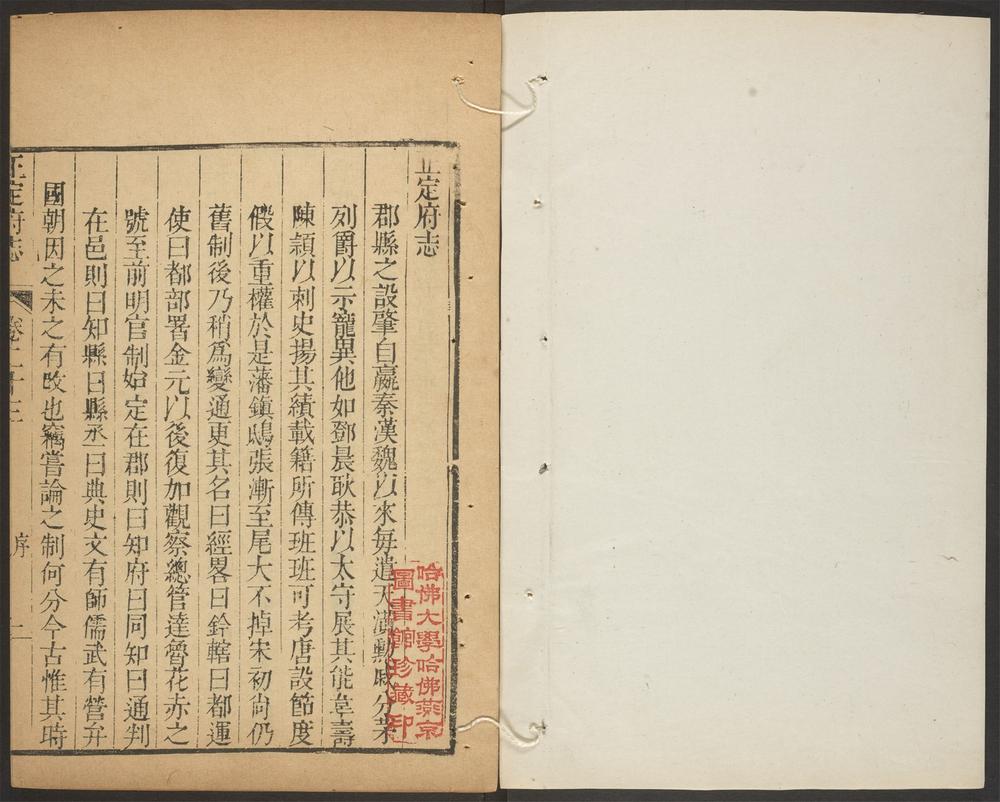 正定府志
郡縣之設肇自嬴秦漢魏以來每遣天潢勲戚分茅
列爵以示寵異他如鄧晨耿恭以太守展其能韋壽
陳頴以刺史揚其績載籍所傳班班可考唐設節度
假以重權於是藩鎮鴟張漸至尾大不掉宋初尙仍
舊制後乃稍爲變通更其名曰經畧曰鈐轄曰都運
使曰都部署金元以後復加觀察總管達魯花赤之
號至前明官制始定在郡則曰知府曰同知曰通判
在邑則曰知縣曰縣丞曰典史文有師儒武有營弁
國朝因之未之有改也竊嘗論之制何分今古惟其時
正定府志 卷二十三 序 一
哈佛大學哈佛燕京
圖書館珍藏印